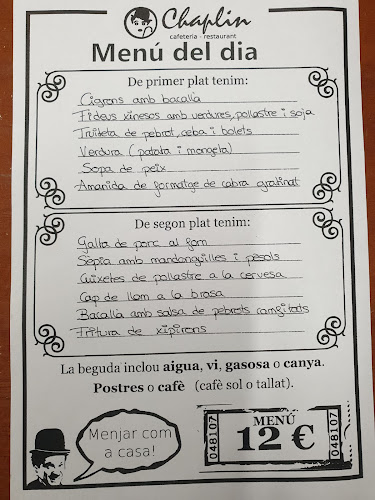 Chaplin
cafeteria - restaurant
Menú del dia
De primer plat tenim:
Cigrons amb bacallà
Fideus xinesos amb verdures, pollastre i soja
Truiteta de pebrot, ceba i bolets
Verdura (patata i mongeta)
Sopa de peix
Amanida de formatge de cabra gratinat
De segon plat tenim:
Galta de porc al forn
Sèpia amb mandonguilles i pèsols
Cuixetes de pollastre a la cervesa
Cap de llom a la brasa
Bacallà amb salsa de pebrots
Fritura de xipirons
La beguda inclou aigua, vi, gasosa o canya.
Postres o cafè (cafè sol o tallat).
Menjar com
a casa!
MENÚ
12 €
048107
048107